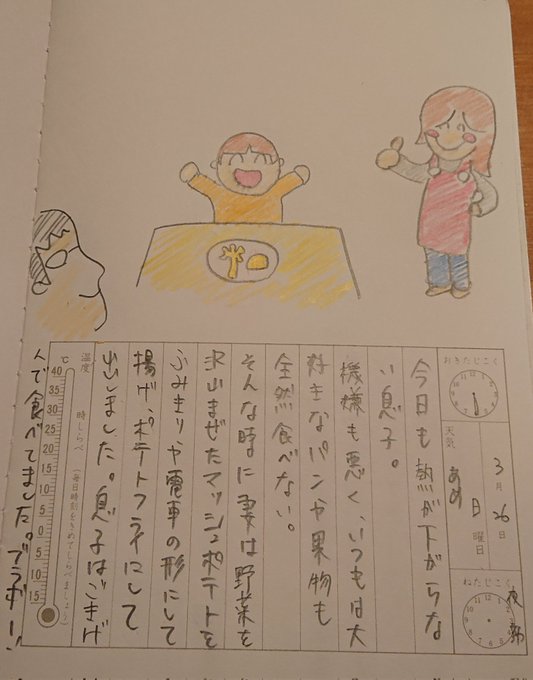 おきたじこく
3月26日
日曜日
天気 あめ
ねたじこく
夜勤
今日も熱が下がらな
い息子。
機嫌も悪く、いつもは大
好きなパンや果物も
全然食べない。
そんな時に妻は野菜を
沢山まぜたマッシュポテトを
ふみきりや電車の形にして
揚げ、ポテトフライにして
出しました。息子はごきげ
んで食べてました。ブラボー!
温度 時しらべ (毎日時刻をきめてしらべましょう)
℃
40
35
30
25
20
15
10
5
0
5
10
15